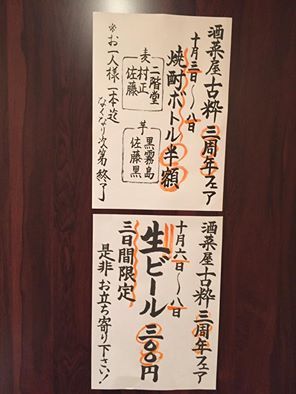 酒菜屋古粋 三周年フェア
十月三日〜八日
焼酎ボトル半額
二階堂
村正
麦 佐藤
黒霧島
芋 佐藤黒
※お一人様一本迄
なくなり次第終了
酒菜屋古粋 三周年フェア
十月六日〜八日
生ビール 三〇〇円
三日間限定
是非お立ち寄り下さい!